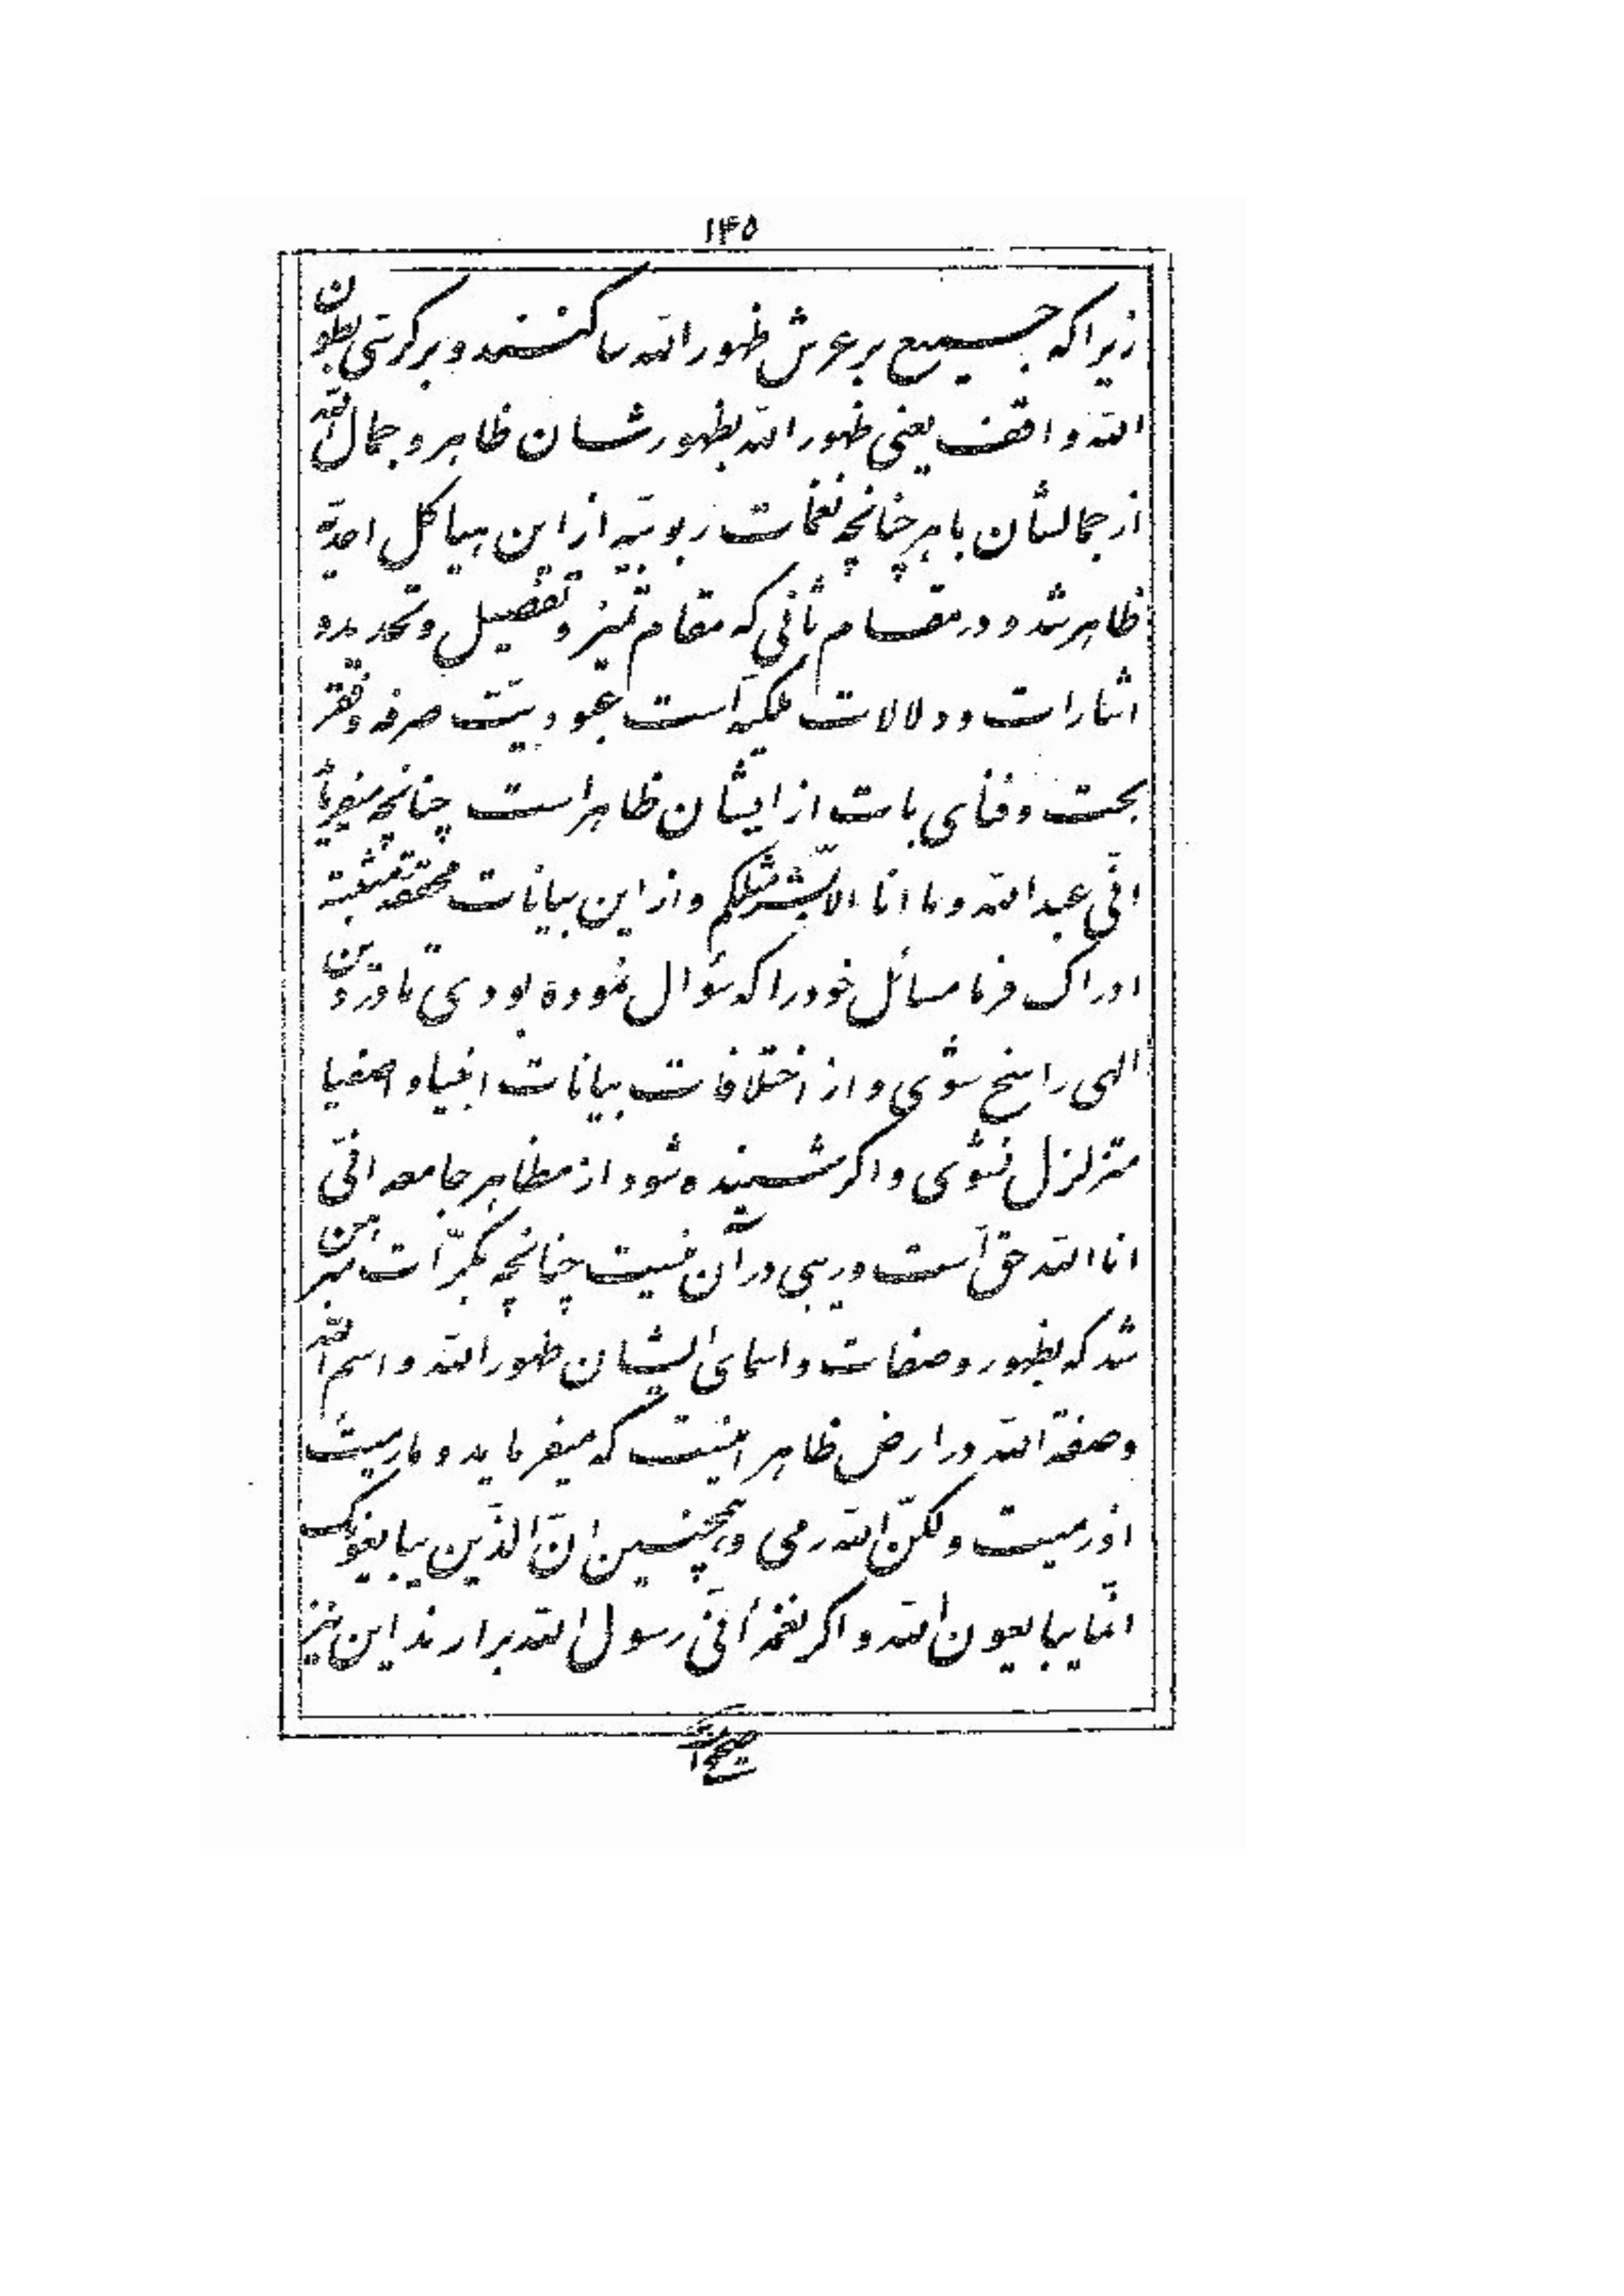 ۱۴۵
زیرا که جمیع بر عرش ظهور الله ساکنند و بر کرسی بطون
الله واقف یعنی ظهور الله بظهورشان ظاهر و جمال الله
از جمالشان باهر چنانچه نغمات ربوبیّه از این هیاکل احدیّه
ظاهر شد و در مقام ثانی که مقام تمیز و تفصیل و تحدید و
اشارات و دلالات ملکیّه است عبودیّت صرفه و فقر
بحت و فنای بات از ایشان ظاهر است چنانچه میفرماید
انّی عبد الله و ما انا الّا بشر مثلکم و از این بیانات محقّقه مثبته
ادراک فرما مسائل خود را که سؤال نموده بودی تا در دین
الهی راسخ شوی و از اختلافات بیانات انبیا و اصفیا
متزلزل نشوی و اگر شنیده شود از مظاهر جامعه انّی
انا الله حقّ است و ریبی در آن نیست چنانچه بکرّات مبرهن
شد که بظهور و صفات و اسمای ایشان ظهور الله و اسم الله
و صفة الله در ارض ظاهر اینست که میفرماید و ما رمیت
اذ رمیت ولکنّ الله رمی و همچنین انّ الّذین یبایعونک
انّما یبایعون الله و اگر نغمهٔ انّی رسول الله برارند این نیز
صحیح است